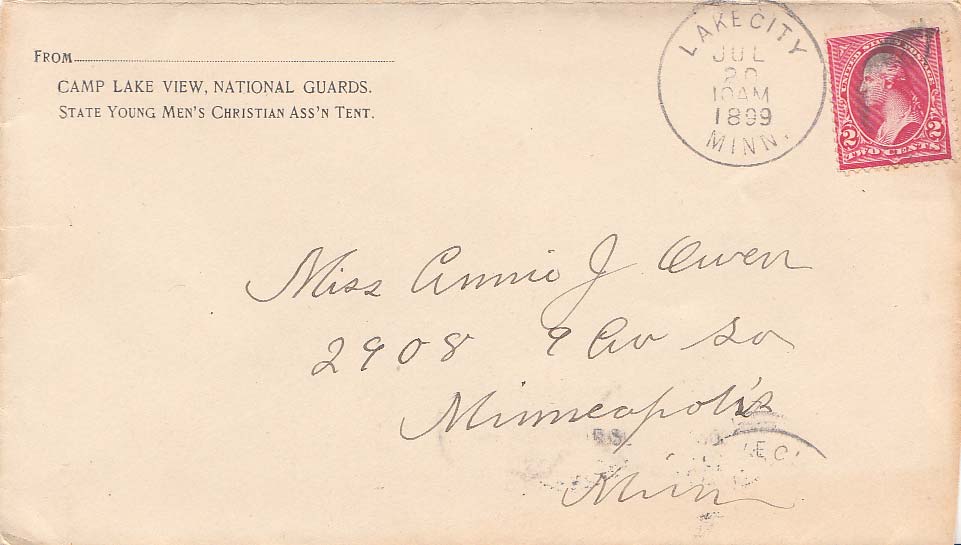 FROM
CAMP LAKE VIEW, NATIONAL GUARDS.
STATE YOUNG MEN'S CHRISTIAN ASS'N TENT.
LAKE CITY
JUL
20
10AM
1899
MINN.
UNITED STATES POSTAGE
2 2
TWO CENTS
Miss Annie J Owen
2908 9 Av So
Minneapolis
Minn